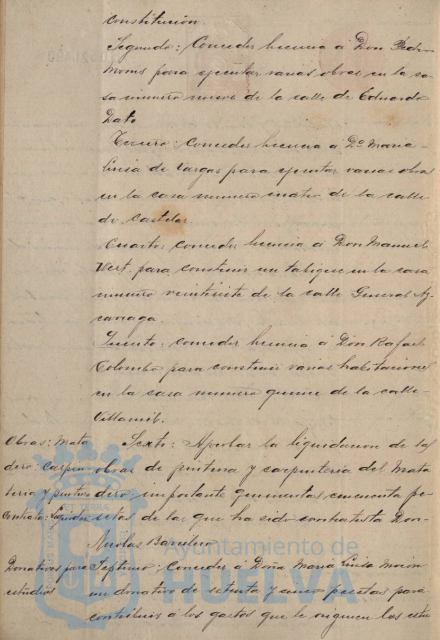 constitución.
Segundo: Conceder licencia á Don Pedro
para ejecutar varias obras en la ca-
sa numero nueve de la calle de Eduardo
Dato
Tercero: Conceder licencia á Dª Maria
Luisa de Vargas para ejecutar varias obras
en la casa numero cuatro de la calle
de Castelar.
Cuarto: conceder licencia á Don Manuel
Vert. para construir un tabique en la casa
numero veintisiete de la calle General Az-
carraga.
Quinto: conceder licencia á Don Rafael
Colombo para construir varias habitaciones
en la casa numero quince de la calle
Obras: Mata
dero: Carpin-
teria y pintura
Contrata:
Sexto: Aprobar la liquidacion de las
obras de pintura y carpinteria del Mata
dero, importante quinientas cincuenta pe-
setas de las que ha sido contratista Don
Nicolas
Donativos para
estudios
Septimo: Conceder á Doña Maria Luisa
un donativo de setenta y cinco pesetas para
contribuir á los gastos que le originen los estu
Ayuntamiento de
HUELVA